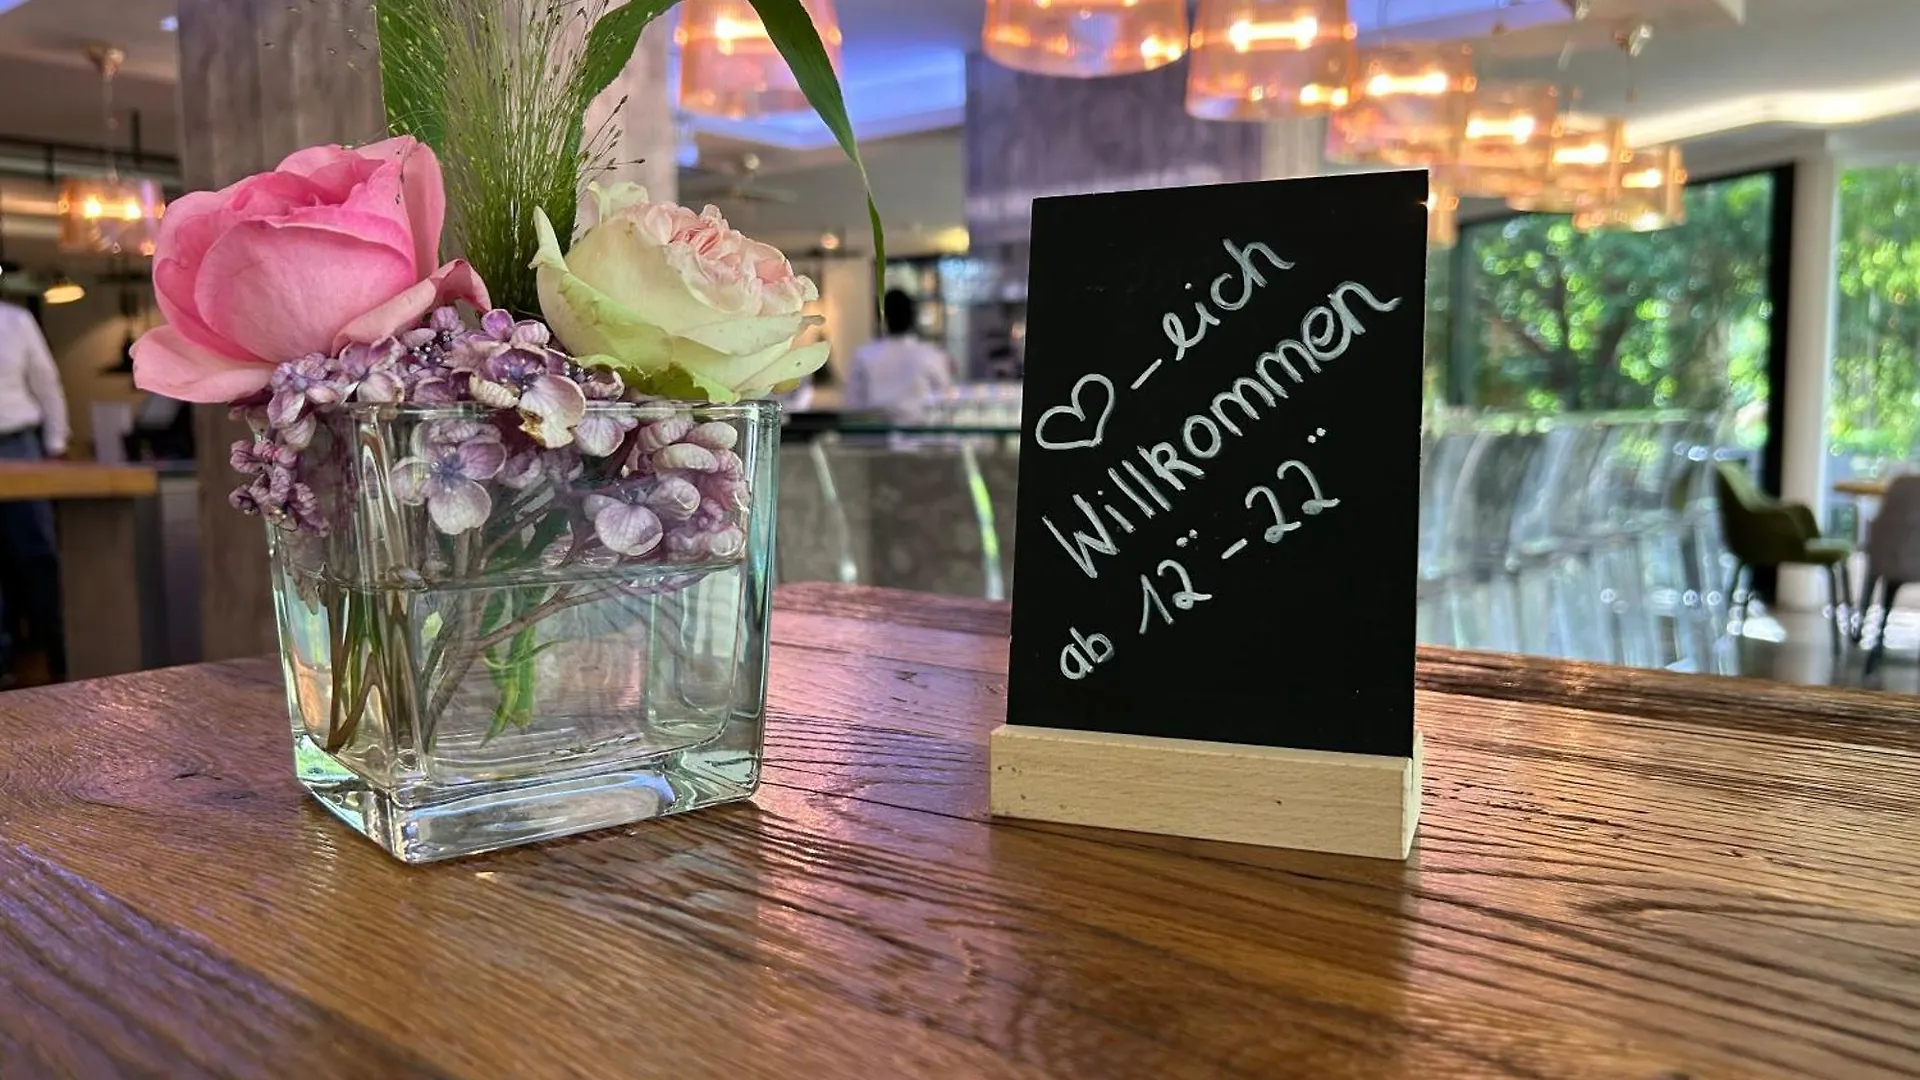 ♡-lich
Willkommen
ab 12°°-22°°